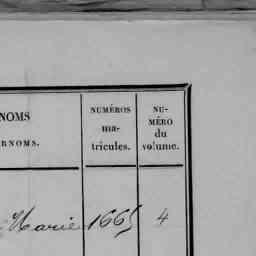 NOMS
RNOMS.
NUMÉROS
ma-
tricules.
NU-
MÉRO
du
volume.
Marie 1665 4